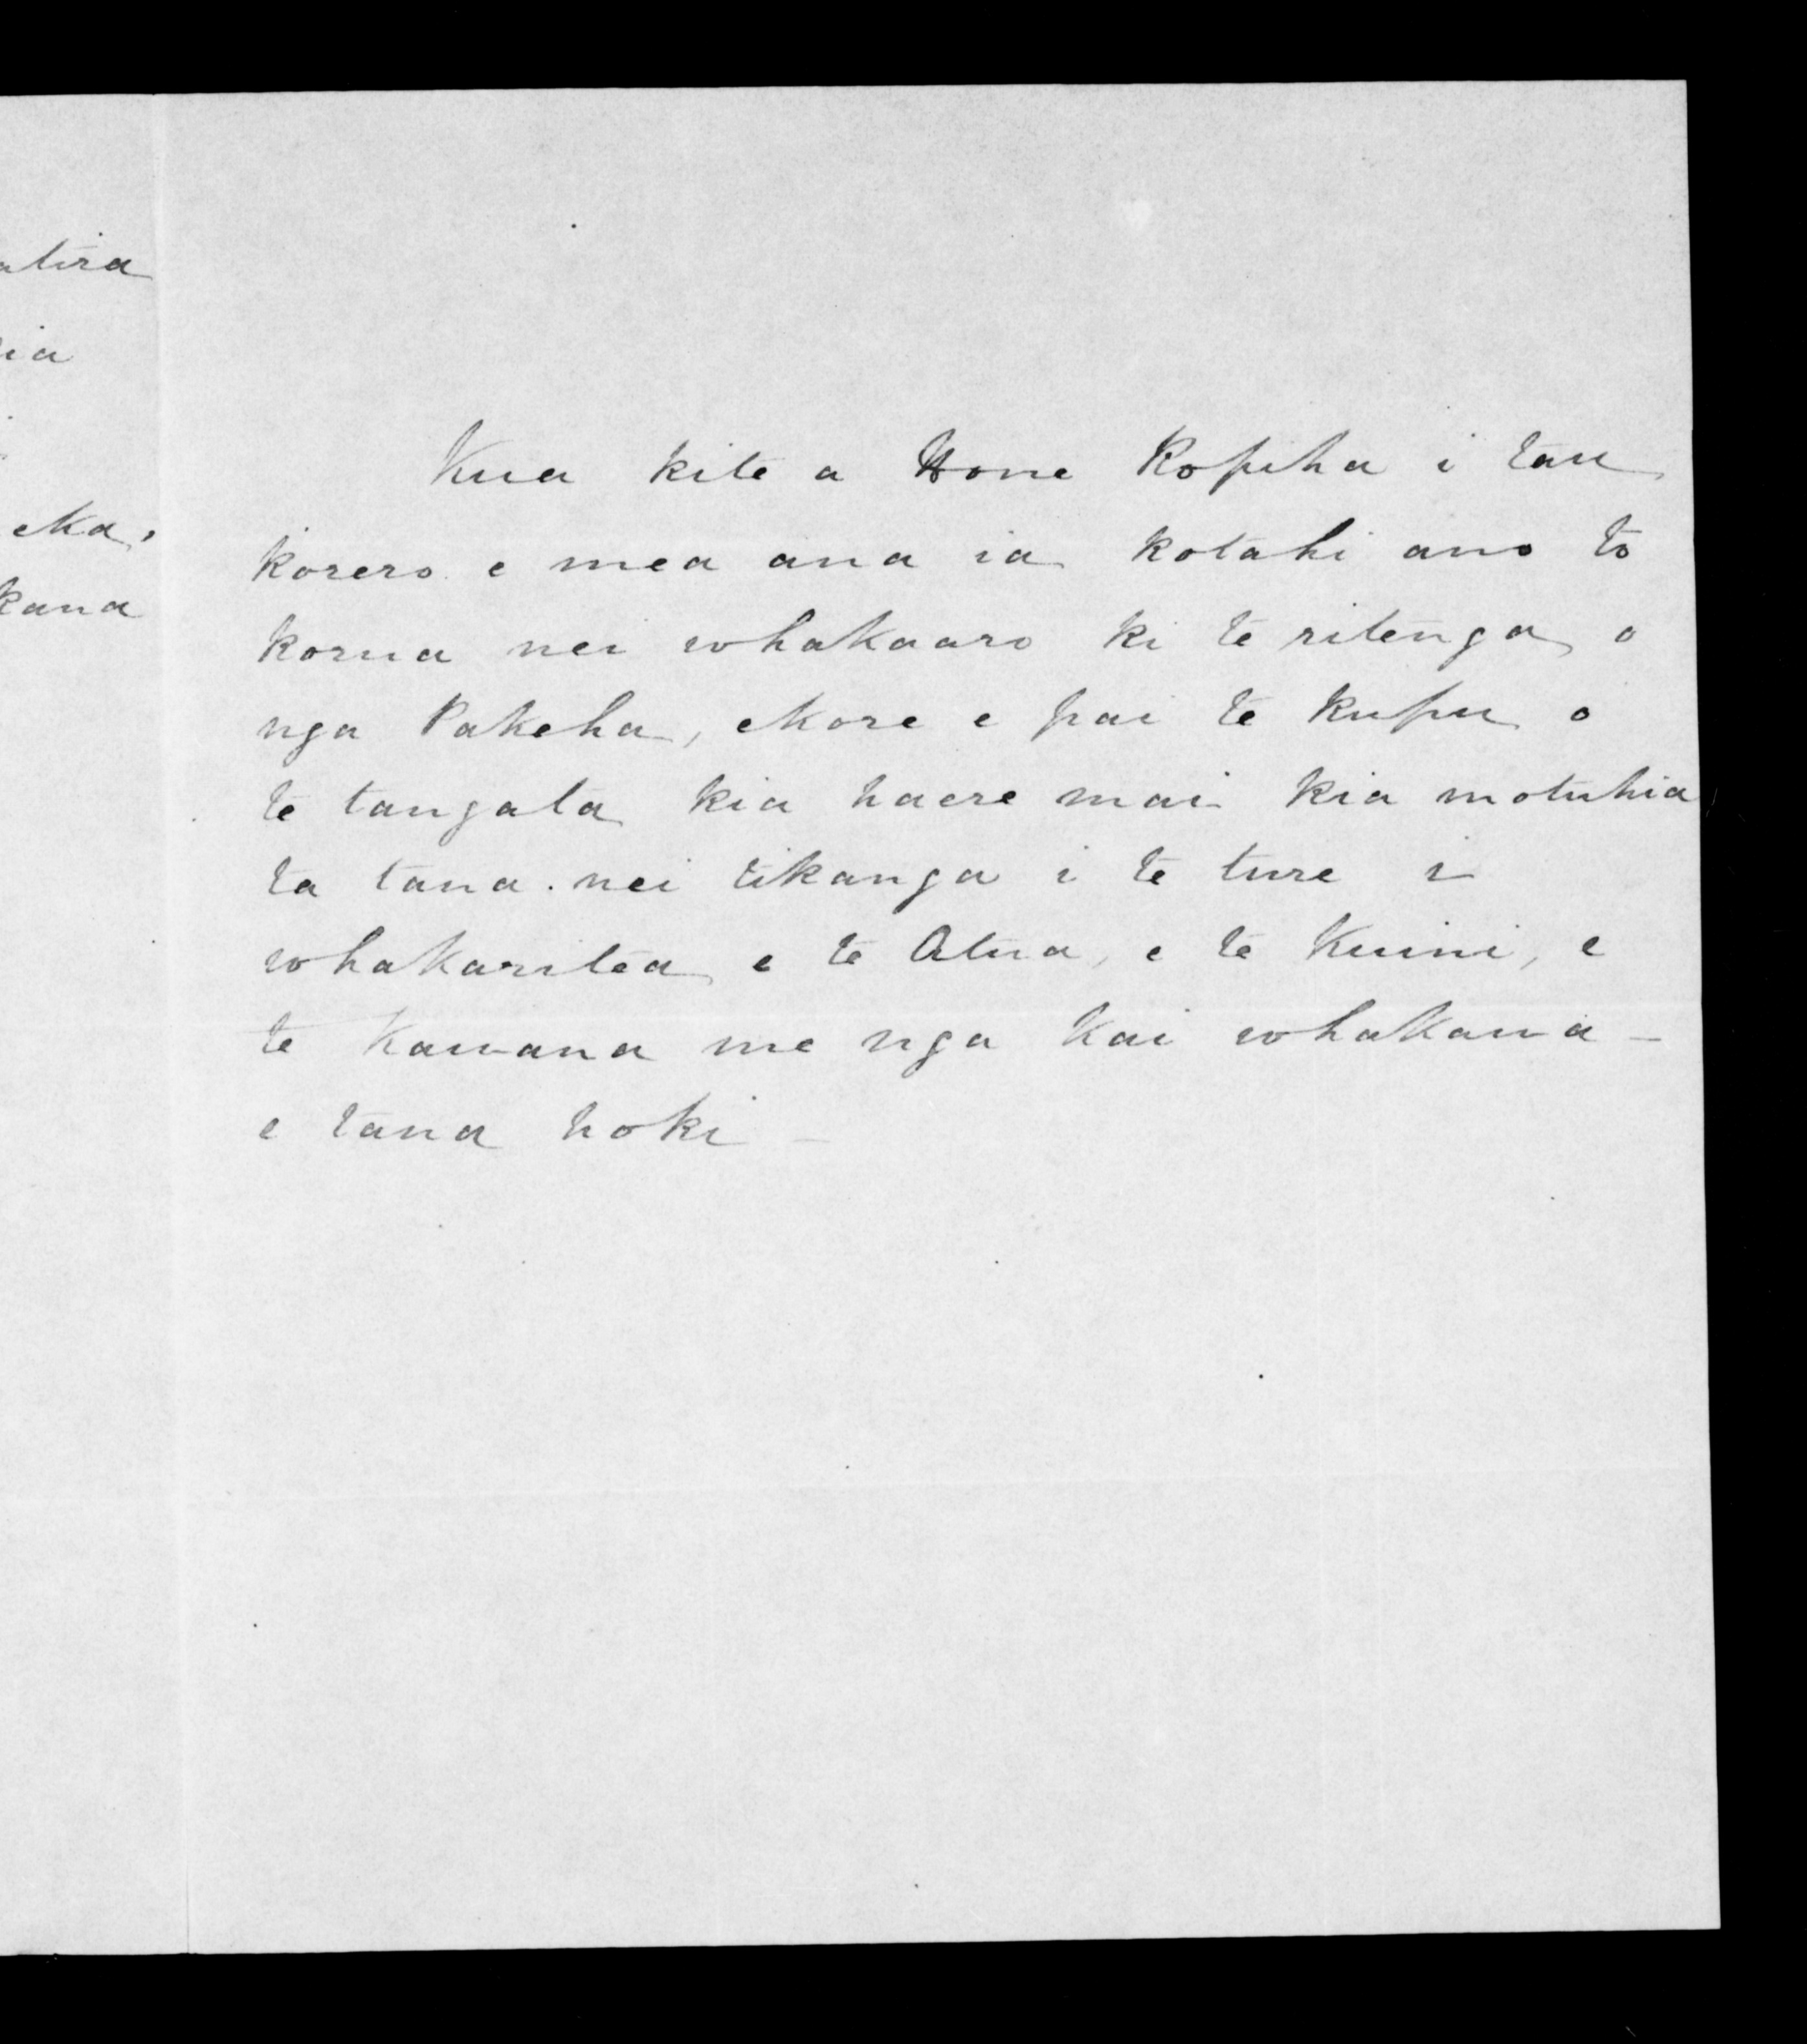 atira
ia
eka,
kana
Kua kite a Hone Ropiha i tau
korero e mea ana ia kotahi ano to
korua nei whakaaro ki te ritenga o
nga Pakeha, ekore e pai te kupu o
te tangata kia haere mai kia motuhia
ta tana nei tikanga i te ture i
whakaritea e te Atua, e te Kuini, e
te Kawana me nga Kai whakawa -
e tana hoki -